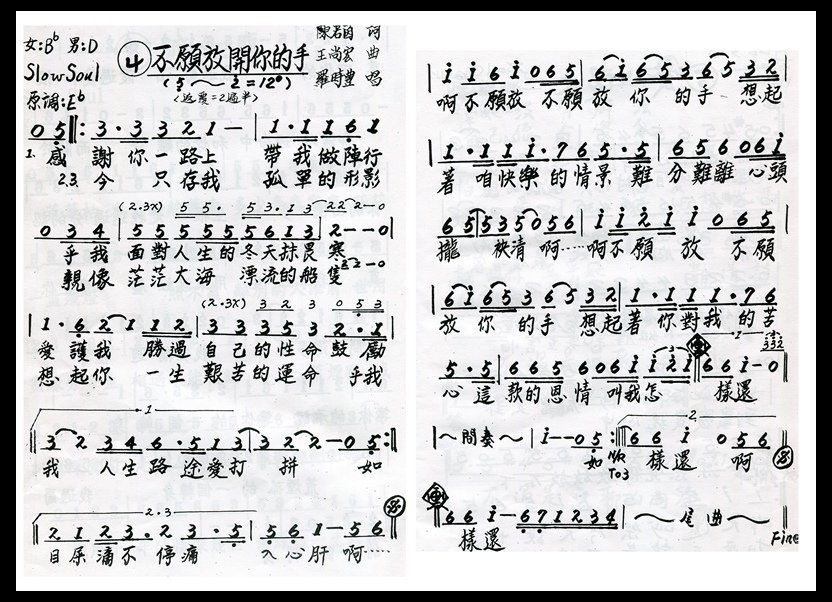 女:Bb 男:D
④ 不願放開你的手
陳君自 詞
王尚宏 曲
羅時豐 唱
Slow Soul
(5～2=12°)
(返覆=2過半)
原調:Eb
0 5 ‖: 3·3 3 2 1 — | 1·1 1 6 1
1. 感 謝你一路上 帶我做陣行
2.3. 今 只存我 孤單的形影
(2.3X) 5 5· 5 3·1 3 2 2 2—0
0 3 4 | 5 5 5 5 5 5 6 1 3 | 2——0
乎我 面對人生的冬天抹畏寒
親像 茫茫大海 漂流的船隻
2 2—0
(2.3X) 3 2 3 0 5 3
1·6 2 1 1 2 | 3 3 3 5 3 2·1
愛護我 勝過自己的性命鼓勵
想起你 一生艱苦的運命 乎我
1
3 2 3 4 6·5 1 3 | 3 2 2—0 5 :‖
我 人生路途愛打拼 如
2·3
2 1 2 3·2 3·5 | 5 6 1—5 6
目屎滴不停痛 入心肝 啊……
| i i 6 i 0 6 5 | 6 i 6 5 3 6 5 3 2
啊不願放 不願放你的手 想起
1·1 1 1·7 6 5·5 | 6 5 6 0 6 i
著 咱快樂的情景 難分難離 心頭
6 5 5 3 5 0 5 6 | i i 2 i i 0 6 5
攏 袂清 啊……啊不願放 不願
6 i 6 5 3 6 5 3 2 | 1·1 1 1·7 6
放你的手 想起著你對我的苦
1
5·5 | 6 6 5 6 0 6 i i 2 i | 6 6 i—0
心這 款的恩情 叫我怎 樣還
2
|～間奏～| i——0 5 :‖ 6 6 i 0 5 6
如 樣還 啊
To3
6 6 i—6 7 1 2 3 4 |～尾曲～‖
樣還
Fine